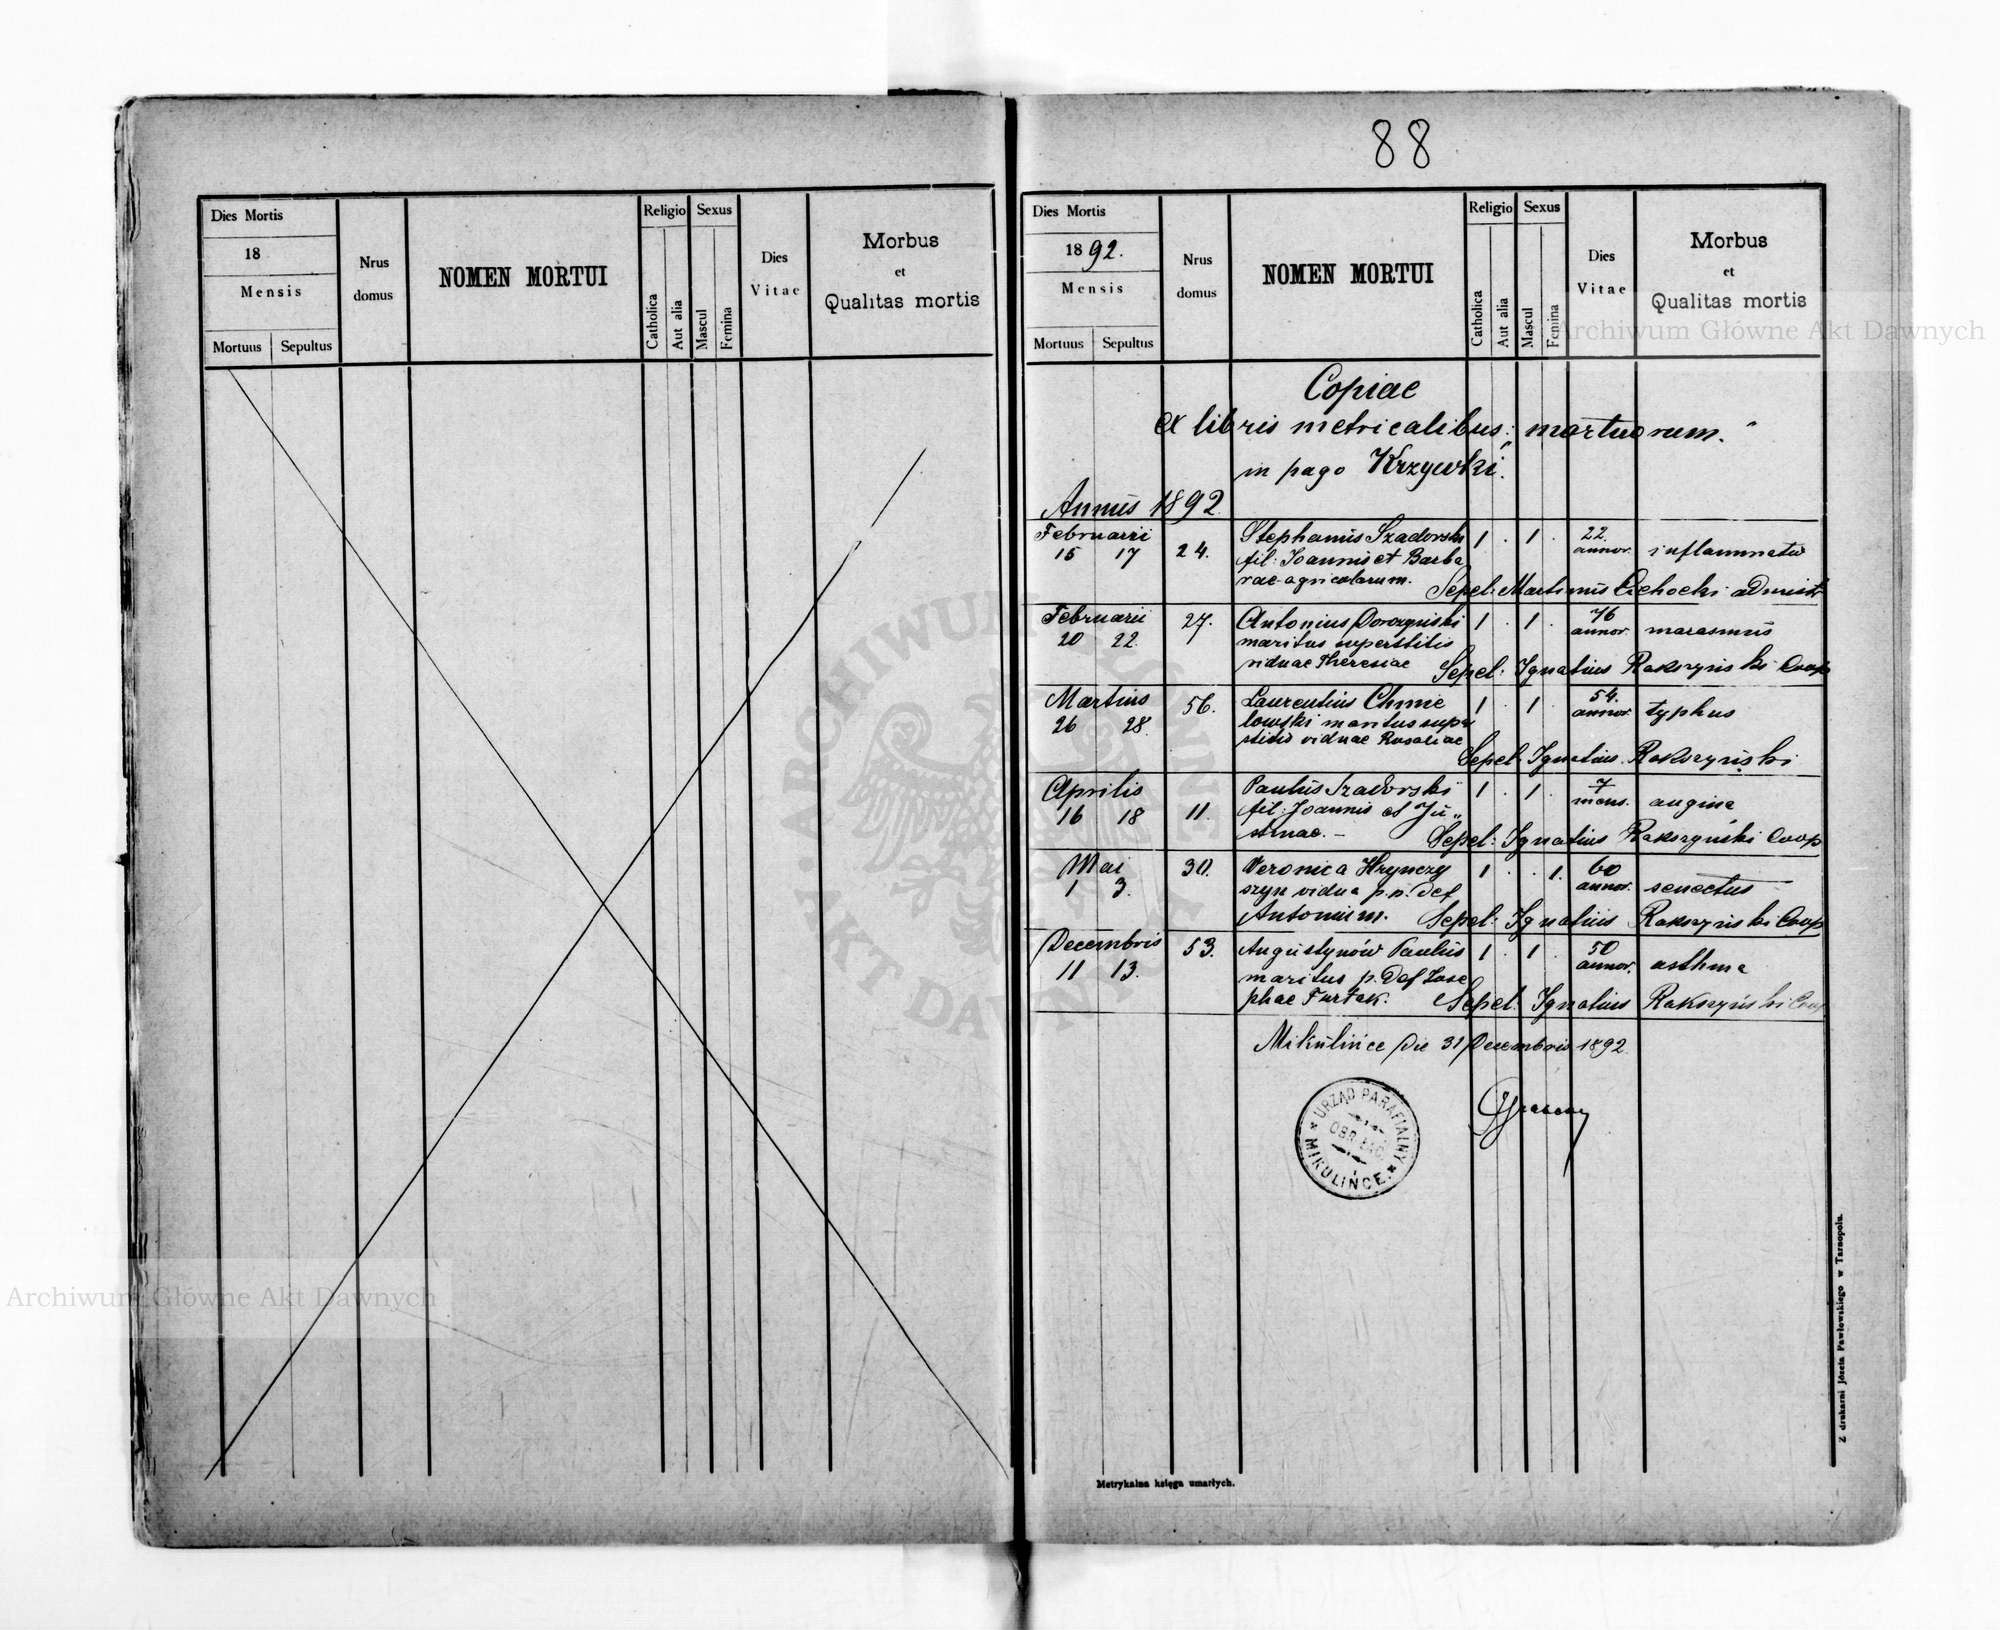 88
Dies Mortis
18
Mensis
Mortuus Sepultus
Nrus
domus
NOMEN MORTUI
Religio
Catholica
Aut alia
Sexus
Mascul
Femina
Dies
Vitae
Morbus
et
Qualitas mortis
Dies Mortis
1892.
Mensis
Mortuus Sepultus
Nrus
domus
NOMEN MORTUI
Religio
Catholica
Aut alia
Sexus
Mascul
Femina
Dies
Vitae
Morbus
et
Qualitas mortis
Copiae
ex libris metricalibus: mortuorum."
in pago Krzywki.
Annus 1892
Februarii
15 17 24.
Stephanus Szadorski 1 . 1 . 22. annor. inflammatio
fil: Joannis et Barba
rae agricolarum. Sepel: Martinus Cichocki
Februarii
20 22 27.
Antonius 1 . 1 . 76 annor. marasmus
maritus superstitis
viduae Theresiae Sepel: Ignatius Rakszyński Coop
Martius
26 28. 56.
Laurentius Chmie 1 . 1 . 54. annor. typhus
lowski maritus supr
stitis viduae Rosaliae
Sepel: Ignatius Rakszyński
Aprilis
16 18 11.
Paulus Szadorski 1 . 1 . 7 mens. angina
fil: Joannis et Ju„
stinae. – Sepel: Ignatius Rakszyński Coop
Mai
1 3. 30.
Veronica Hrynczy 1 . . 1. 60 annor. senectus
szyn vidua p. p. def
Antonium. Sepel: Ignatius Rakszyński Coop
Decembris
11 13. 53.
Augustynów Paulus 1 . 1 . 50 annor. asthma
maritus p. def Jose
phae Furtak. Sepel: Ignatius Rakszyński Coop
Mikulińce die 31 Decembris 1892.
URZĄD PARAFIALNY
OBR. ŁAC.
MIKULIŃCE.
Metrykalna księga umarłych.
Z drukarni Józefa Pawłowskiego w Tarnopolu.
ARCHIWUM GŁÓWNE AKT DAWNYCH
Archiwum Główne Akt Dawnych
Archiwum Główne Akt Dawnych